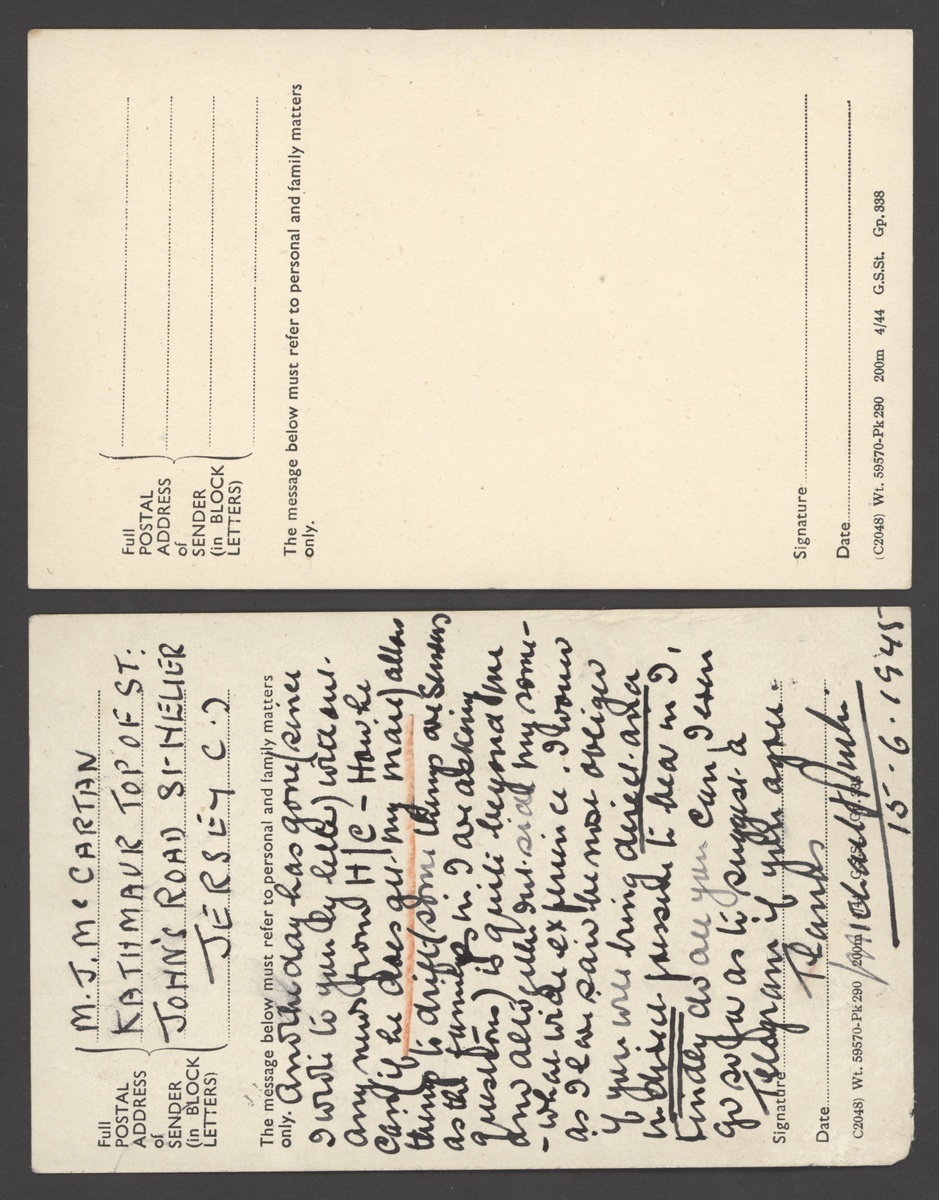 Full
POSTAL
ADDRESS
of
SENDER
(in BLOCK
LETTERS)
The message below must refer to personal and family matters
only.
Signature
Date
(C2048) Wt. 59570-Pk 290 200m 4/44 G.S.St. Gp. 338
Full
POSTAL
ADDRESS
of
SENDER
(in BLOCK
LETTERS)
M. J. McCARTAN
KATHMAUR TOP OF ST:
JOHN'S ROAD ST-HELIER
JERSEY C.J
The message below must refer to personal and family matters
only. Another day has gone (since
I wrote to you by letter) without
any news from H/C - How he
can (if he does get my mail) allow
things to drift (some things are serious
as the families in I are asking
questions) is quite beyond me
and altogether outside my some-
-what wide experience. I would
as I have said be most obliged
if you were bring direct and
indirect pressure to bear in I,
Kindly do all you can, I even
go so far as to suggest a
Telegram if you agree.
Signature
Thanks
Date
(C2048) Wt. 59570-Pk 290 200m
15-6-1945